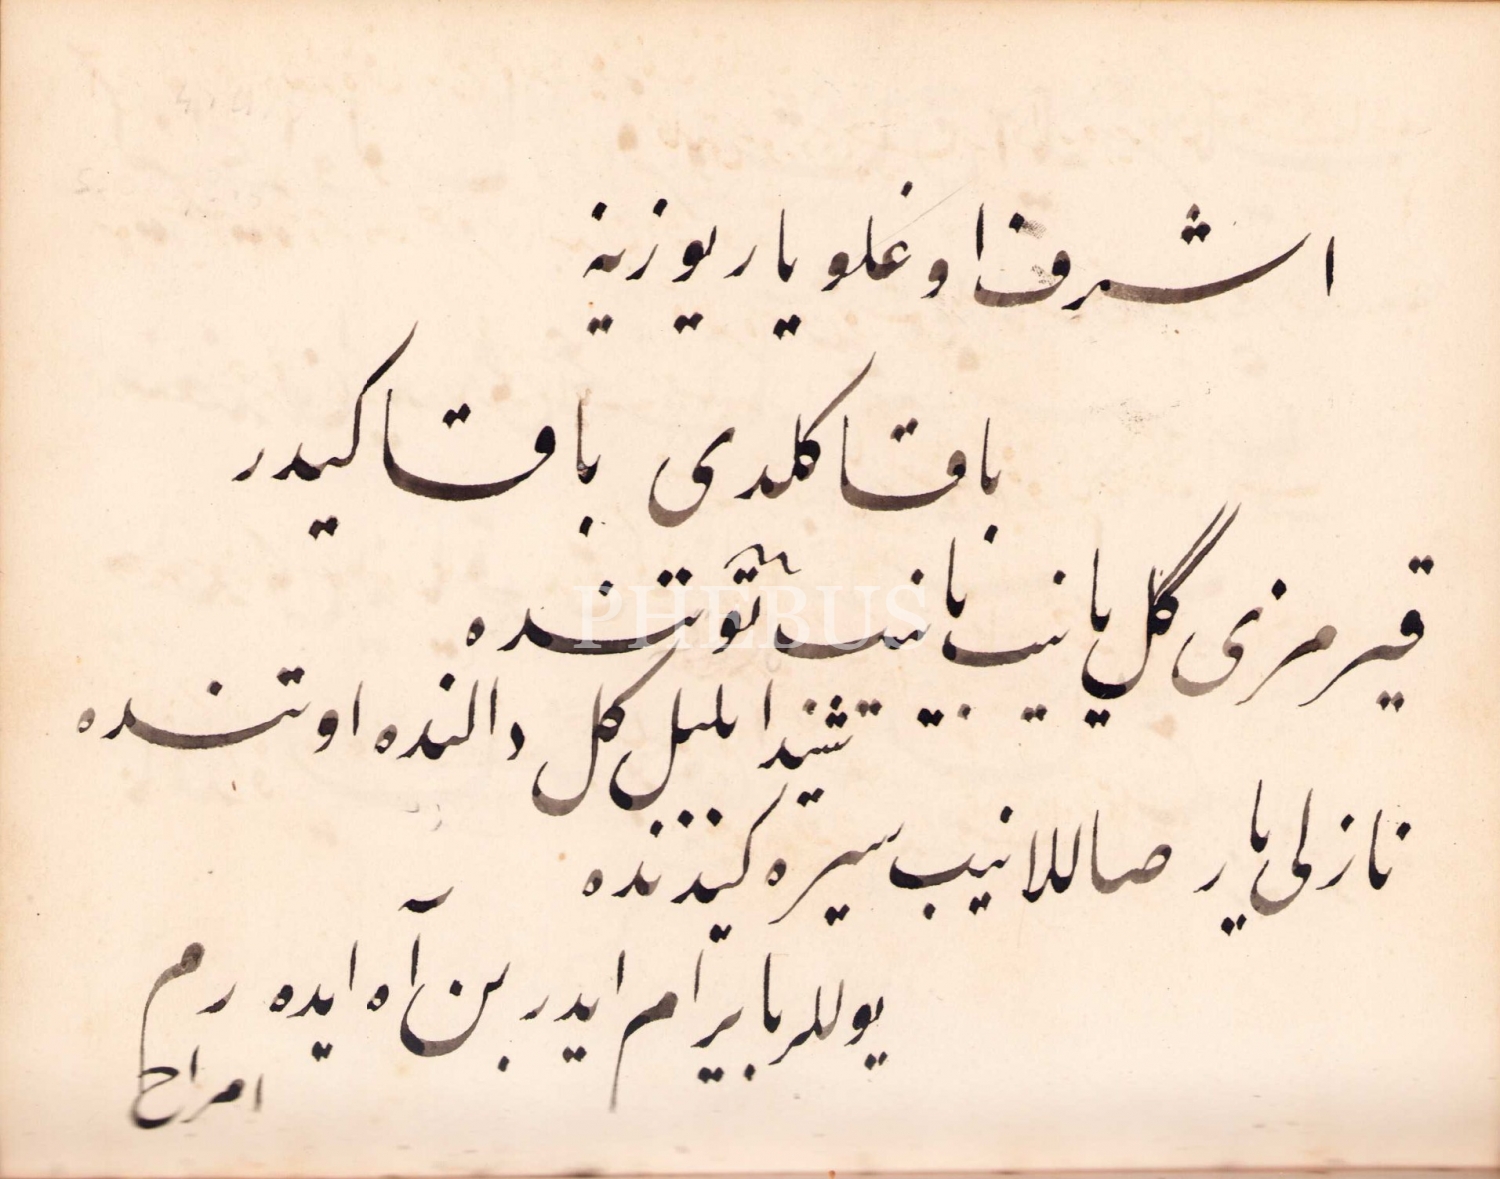 اشرف اوغلو یار یوزینه
باقا کلدی باقا کیدر
قیرمزی گل یانیب یانیب توتنده
شیدا بلبل کل دالنده اوتنده
نازلی یار صاللانیب سیره کیدنده
یوللر بایرام ایدر بن آه ایده رم
امراح
PHEBUS